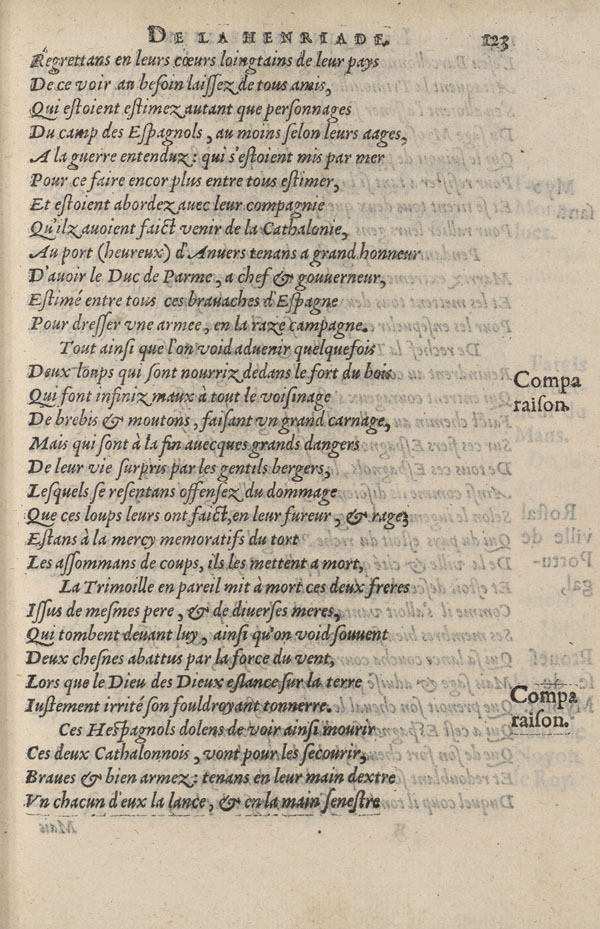 DE LA HENRIADE. 123
Regrettans en leurs cœurs loingtains de leur pays
De ce voir au besoin laissez de tous amis,
Qui estoient estimez autant que personnages
Du camp des Espagnols, au moins selon leurs aages,
A la guerre entenduz: qui s'estoient mis par mer
Pour ce faire encor plus entre tous estimer,
Et estoient abordez auec leur compagnie
Qu'ilz auoient faict venir de la Cathalonie,
Au port (heureux) d'Anuers tenans a grand honneur
D'auoir le Duc de Parme, a chef & gouuerneur,
Estimé entre tous ces brauaches d'Espagne
Pour dresser vne armee, en la raze campagne.
Tout ainsi que l'on void aduenir quelquefois
Deux loups qui sont nourriz dedans le fort du bois
Qui font infiniz maux à tout le voisinage
De brebis & moutons, faisant vn grand carnage,
Compa
raison.
Mais qui sont à la fin auecques grands dangers
De leur vie surpris par les gentils bergers,
Lesquels se resentans offensez du dommage
Que ces loups leurs ont faict, en leur fureur, & rage;
Estans à la mercy memoratifs du tort
Les assommans de coups, ils les mettent a mort,
La Trimoille en pareil mit à mort ces deux freres
Issus de mesmes pere, & de diuerses meres,
Qui tombent deuant luy, ainsi qu'on void souuent
Deux chesnes abattus par la force du vent,
Lors que le Dieu des Dieux eslance sur la terre
Iustement irrité son fouldroyant tonnerre.
Compa
raison.
Ces Hespagnols dolens de voir ainsi mourir
Ces deux Cathalonnois, vont pour les secourir,
Braues & bien armez: tenans en leur main dextre
Vn chacun d'eux la lance, & en la main senestre